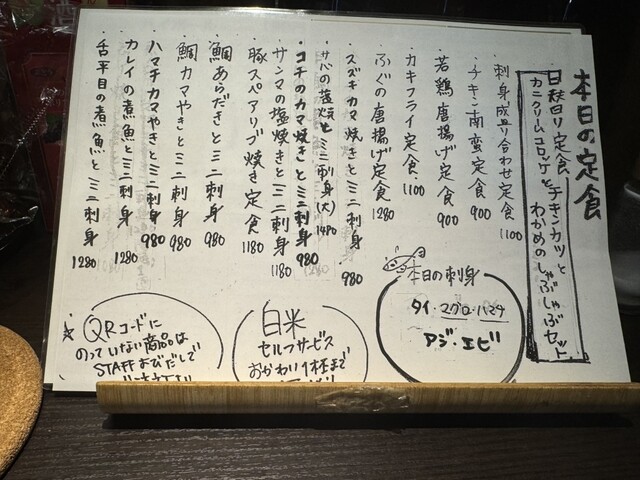 本日の定食
日替り定食 チキンカツと
カニクリームコロッケと わかめのしゃぶしゃぶセット
・刺身盛り合わせ定食 1100
・チキン南蛮定食 900
・若鶏唐揚げ定食 900
・カキフライ定食 1100
・ふぐの唐揚げ定食 1280
・スズキカマ焼きとミニ刺身 980
・サバの塩焼とミニ刺身(大) 1480
・コチのカマ焼きとミニ刺身 980
・サンマの塩焼きとミニ刺身 1180
・豚スペアリブ焼き定食 1180
・鯛あらだきとミニ刺身 980
・鯛カマやきとミニ刺身 980
・ハマチカマやきとミニ刺身 980
・カレイの煮魚とミニ刺身 1280
・舌平目の煮魚とミニ刺身 1280
本日の刺身
タイ・マグロ・ハマチ
アジ・エビ
白米
セルフサービス
おかわり1杯まで
☆QRコードに
のっていない商品は
STAFFおよびだして